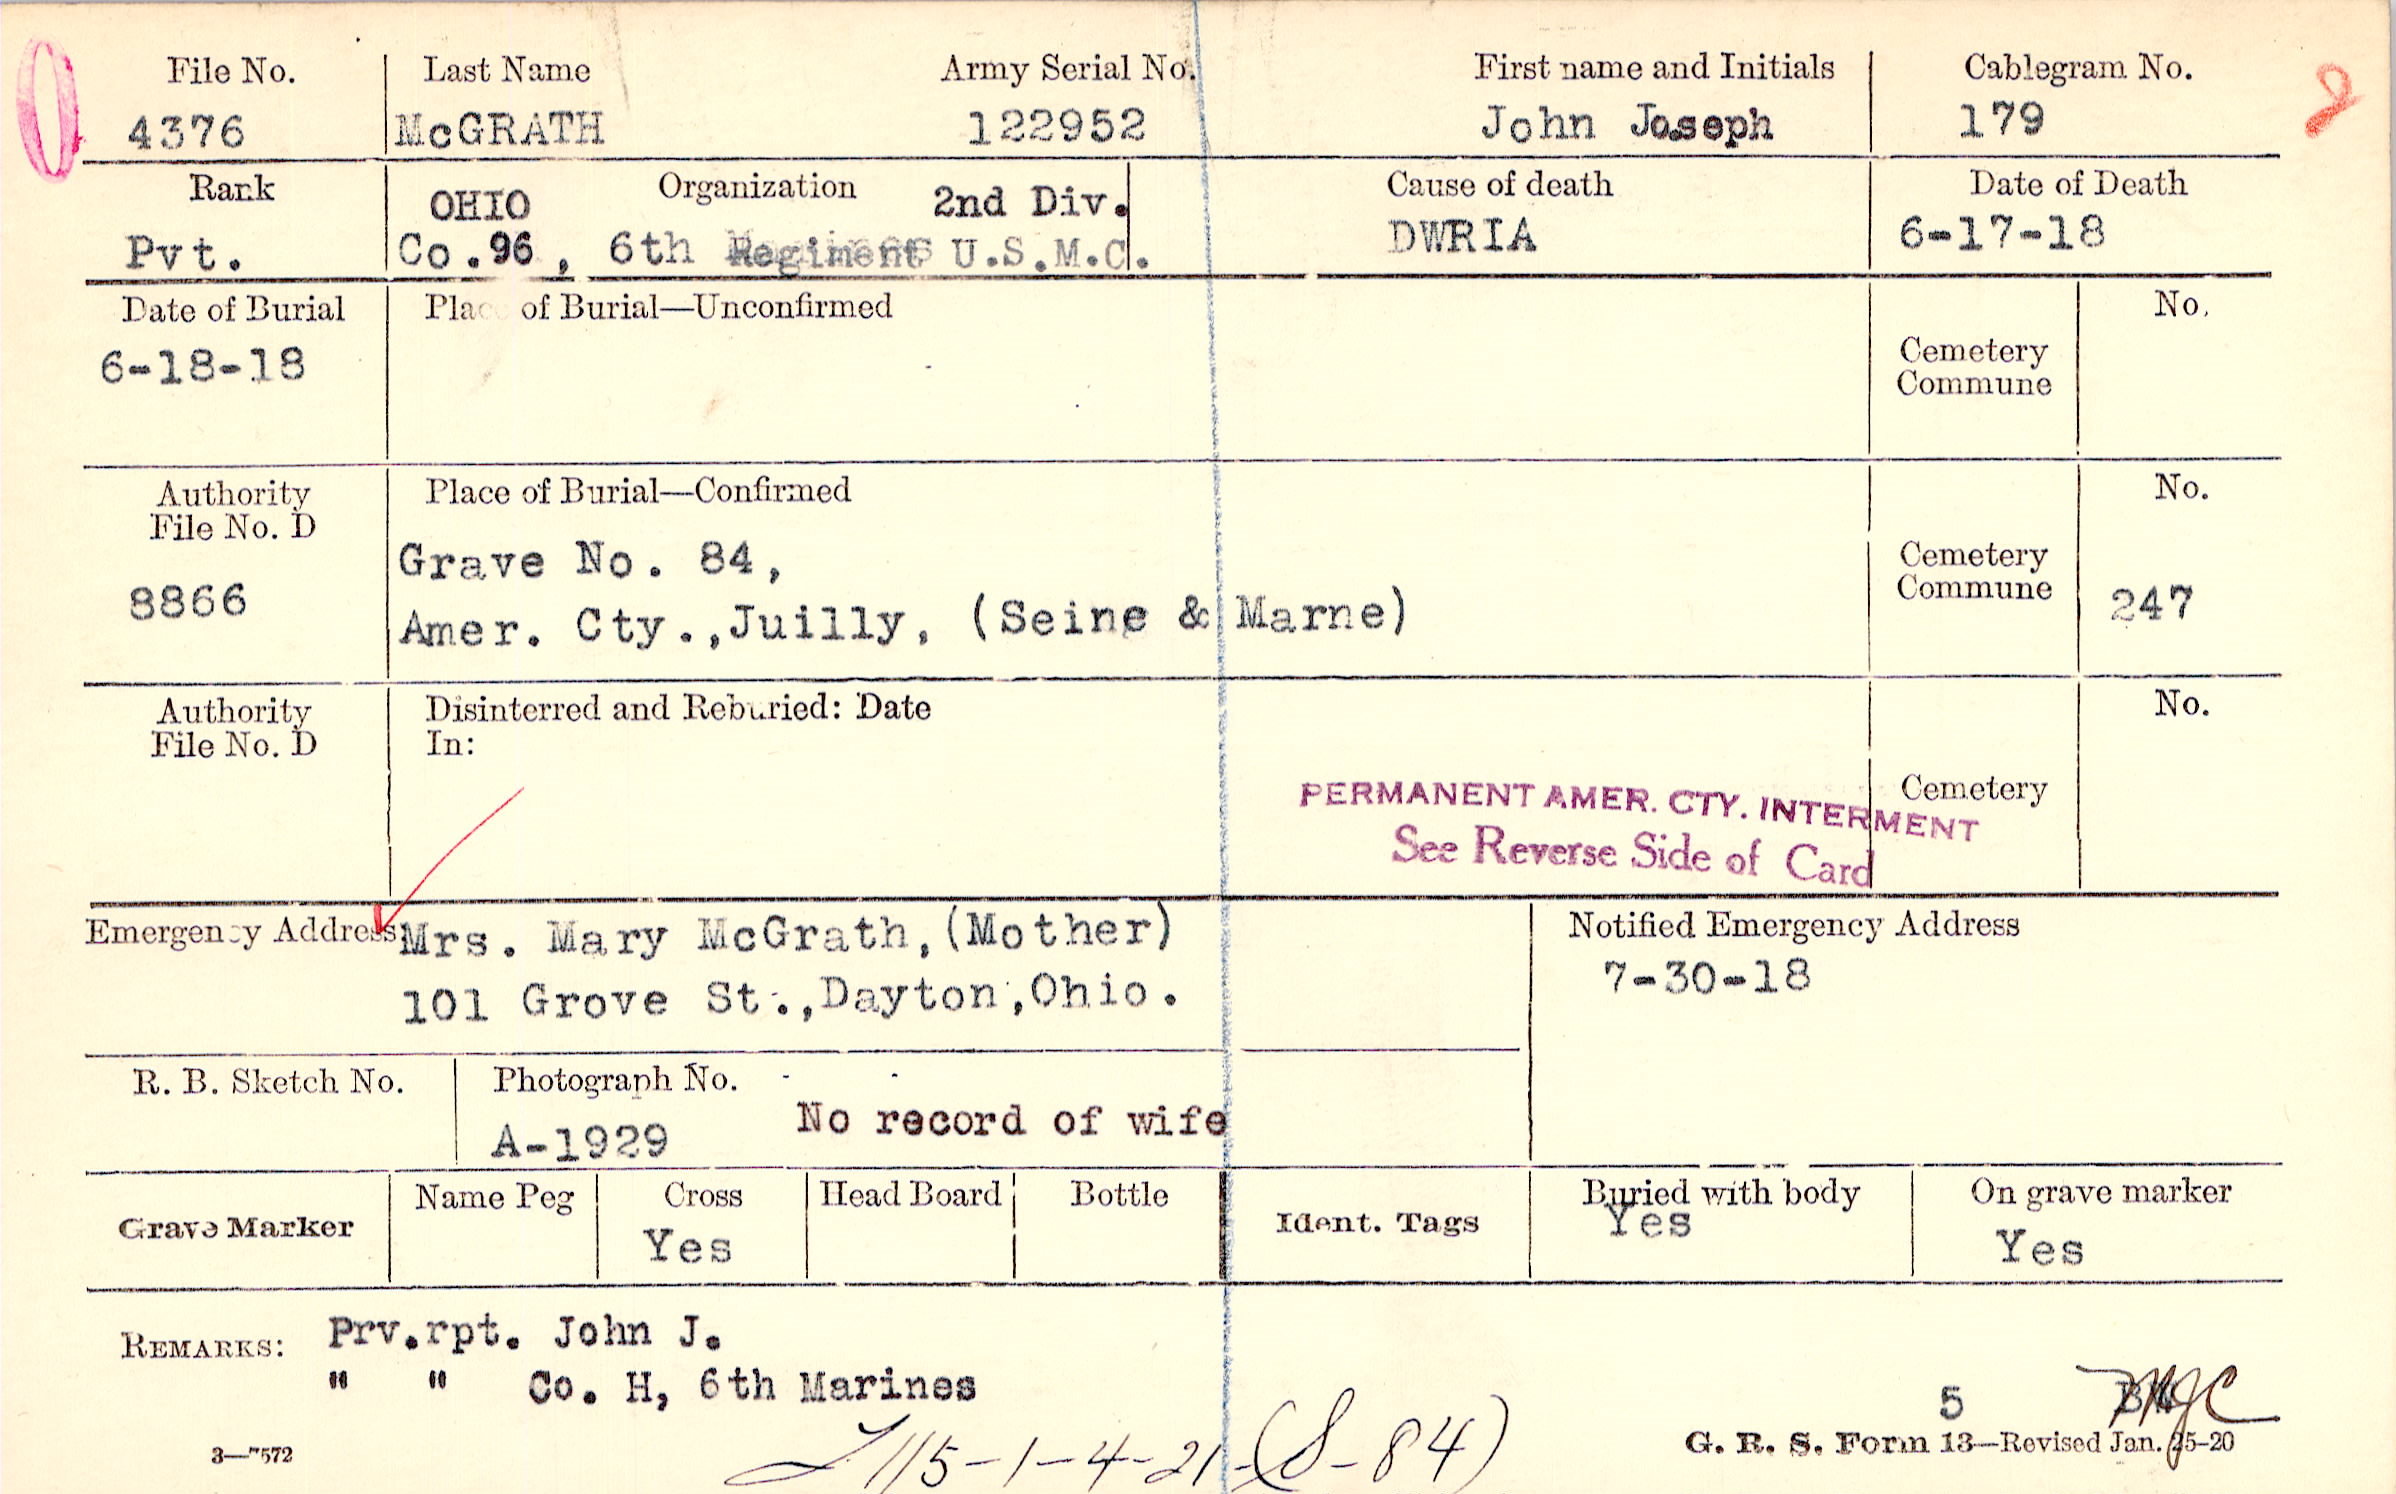 File No. Last Name Army Serial No. First name and Initials Cablegram No.
4376 McGRATH 122952 John Joseph 179
Rank OHIO Organization 2nd Div. Cause of death Date of Death
Pvt. Co.96, 6th Regiment U.S.M.C. DWRIA 6-17-18
Date of Burial Place of Burial—Unconfirmed No.
6-18-18 Cemetery
Commune
Authority Place of Burial—Confirmed No.
File No. D
Grave No. 84, Cemetery
8866 Commune 247
Amer. Cty.,Juilly, (Seine & Marne)
Authority Disinterred and Reburied: Date No.
File No. D In:
Cemetery
PERMANENT AMER. CTY. INTERMENT
See Reverse Side of Card
Emergency Address Mrs. Mary McGrath, (Mother) Notified Emergency Address
101 Grove St.,Dayton,Ohio. 7-30-18
R. B. Sketch No. Photograph No.
A-1929 No record of wife
Grave Marker Name Peg Cross Head Board Bottle Ident. Tags Buried with body On grave marker
Yes Yes Yes
REMARKS: Prv.rpt. John J.
" " Co. H, 6th Marines
5
3—7572 G. R. S. Form 13—Revised Jan. 25-20
115-1-4-21-(S-84)